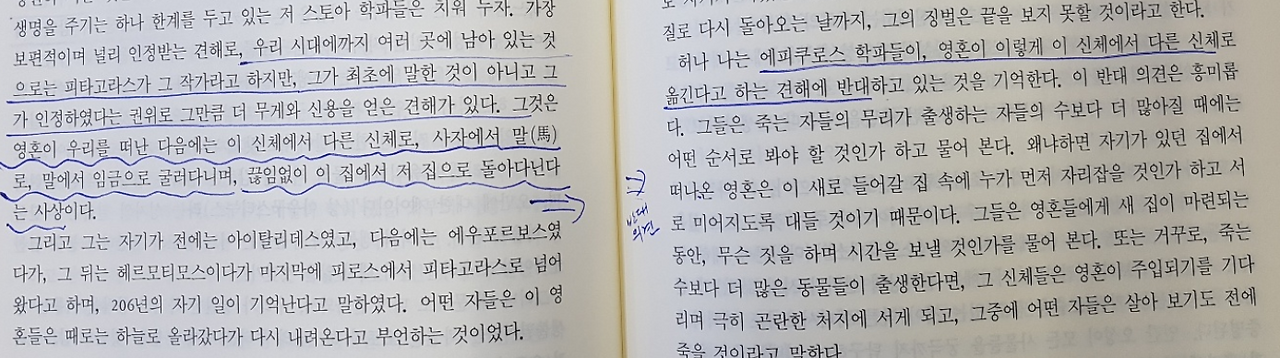 생명을 주기는 하나 한계를 두고 있는 저 스토아 학파들은 치워 두자. 가장
보편적이며 널리 인정받는 견해로, 우리 시대에까지 여러 곳에 남아 있는 것
으로는 피타고라스가 그 작가라고 하지만, 그가 최초에 말한 것이 아니고 그
가 인정하였다는 권위로 그만큼 더 무게와 신용을 얻은 견해가 있다. 그것은
영혼이 우리를 떠난 다음에는 이 신체에서 다른 신체로, 사자에서 말(馬)
로, 말에서 임금으로 굴러다니며, 끊임없이 이 집에서 저 집으로 돌아다닌다
는 사상이다.
그리고 그는 자기가 전에는 아이탈리데스였고, 다음에는 에우포르보스였
다가, 그 뒤는 헤르모티모스이다가 마지막에 피로스에서 피타고라스로 넘어
왔다고 하며, 206년의 자기 일이 기억난다고 말하였다. 어떤 자들은 이 영
혼들은 때로는 하늘로 올라갔다가 다시 내려온다고 부언하는 것이었다.
질로 다시 돌아오는 날까지, 그의 징벌은 끝을 보지 못할 것이라고 한다.
허나 나는 에피쿠로스 학파들이, 영혼이 이렇게 이 신체에서 다른 신체로
옮긴다고 하는 견해에 반대하고 있는 것을 기억한다. 이 반대 의견은 흥미롭
다. 그들은 죽는 자들의 무리가 출생하는 자들의 수보다 더 많아질 때에는
어떤 순서로 봐야 할 것인가 하고 물어 본다. 왜냐하면 자기가 있던 집에서
떠나온 영혼은 이 새로 들어갈 집 속에 누가 먼저 자리잡을 것인가 하고 서
로 미어지도록 대들 것이기 때문이다. 그들은 영혼들에게 새 집이 마련되는
동안, 무슨 짓을 하며 시간을 보낼 것인가를 물어 본다. 또는 거꾸로, 죽는
수보다 더 많은 동물들이 출생한다면, 그 신체들은 영혼이 주입되기를 기다
리며 극히 곤란한 처지에 서게 되고, 그중에 어떤 자들은 살아 보기도 전에
죽을 것이라고 말한다.
반대
의견